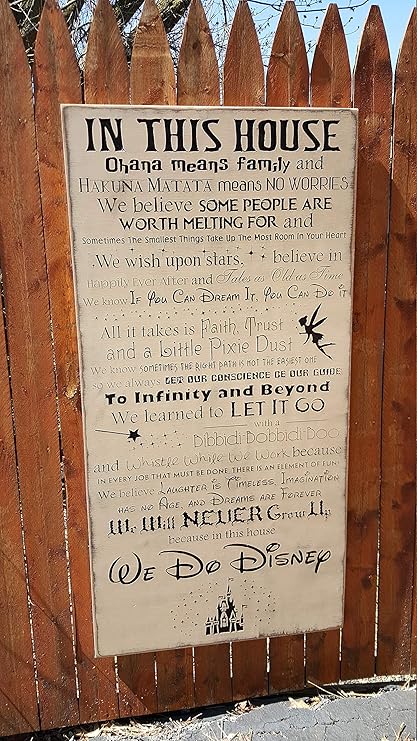 IN THIS HOUSE
Ohana means family and
HAKUNA MATATA means NO WORRIES
We believe SOME PEOPLE ARE
WORTH MELTING FOR and
Sometimes The Smallest Things Take Up The Most Room In Your Heart
We wish upon stars, believe in
Happily Ever After and Tales as Old as Time
We know IF YOU CAN DREAM IT, YOU CAN DO IT
All it takes is Faith, Trust
and a Little Pixie Dust
We know SOMETIMES THE RIGHT PATH IS NOT THE EASIEST ONE
so we always LET OUR CONSCIENCE BE OUR GUIDE
To Infinity and Beyond
We learned to LET IT GO
with a
Bibbidi Bobbidi Boo
and Whistle While We Work because
IN EVERY JOB THAT MUST BE DONE, THERE IS AN ELEMENT OF FUN!
We believe LAUGHTER IS TIMELESS, IMAGINATION
HAS NO AGE, AND DREAMS ARE FOREVER
We Will NEVER Grow Up
because in this house
WE DO DISNEY